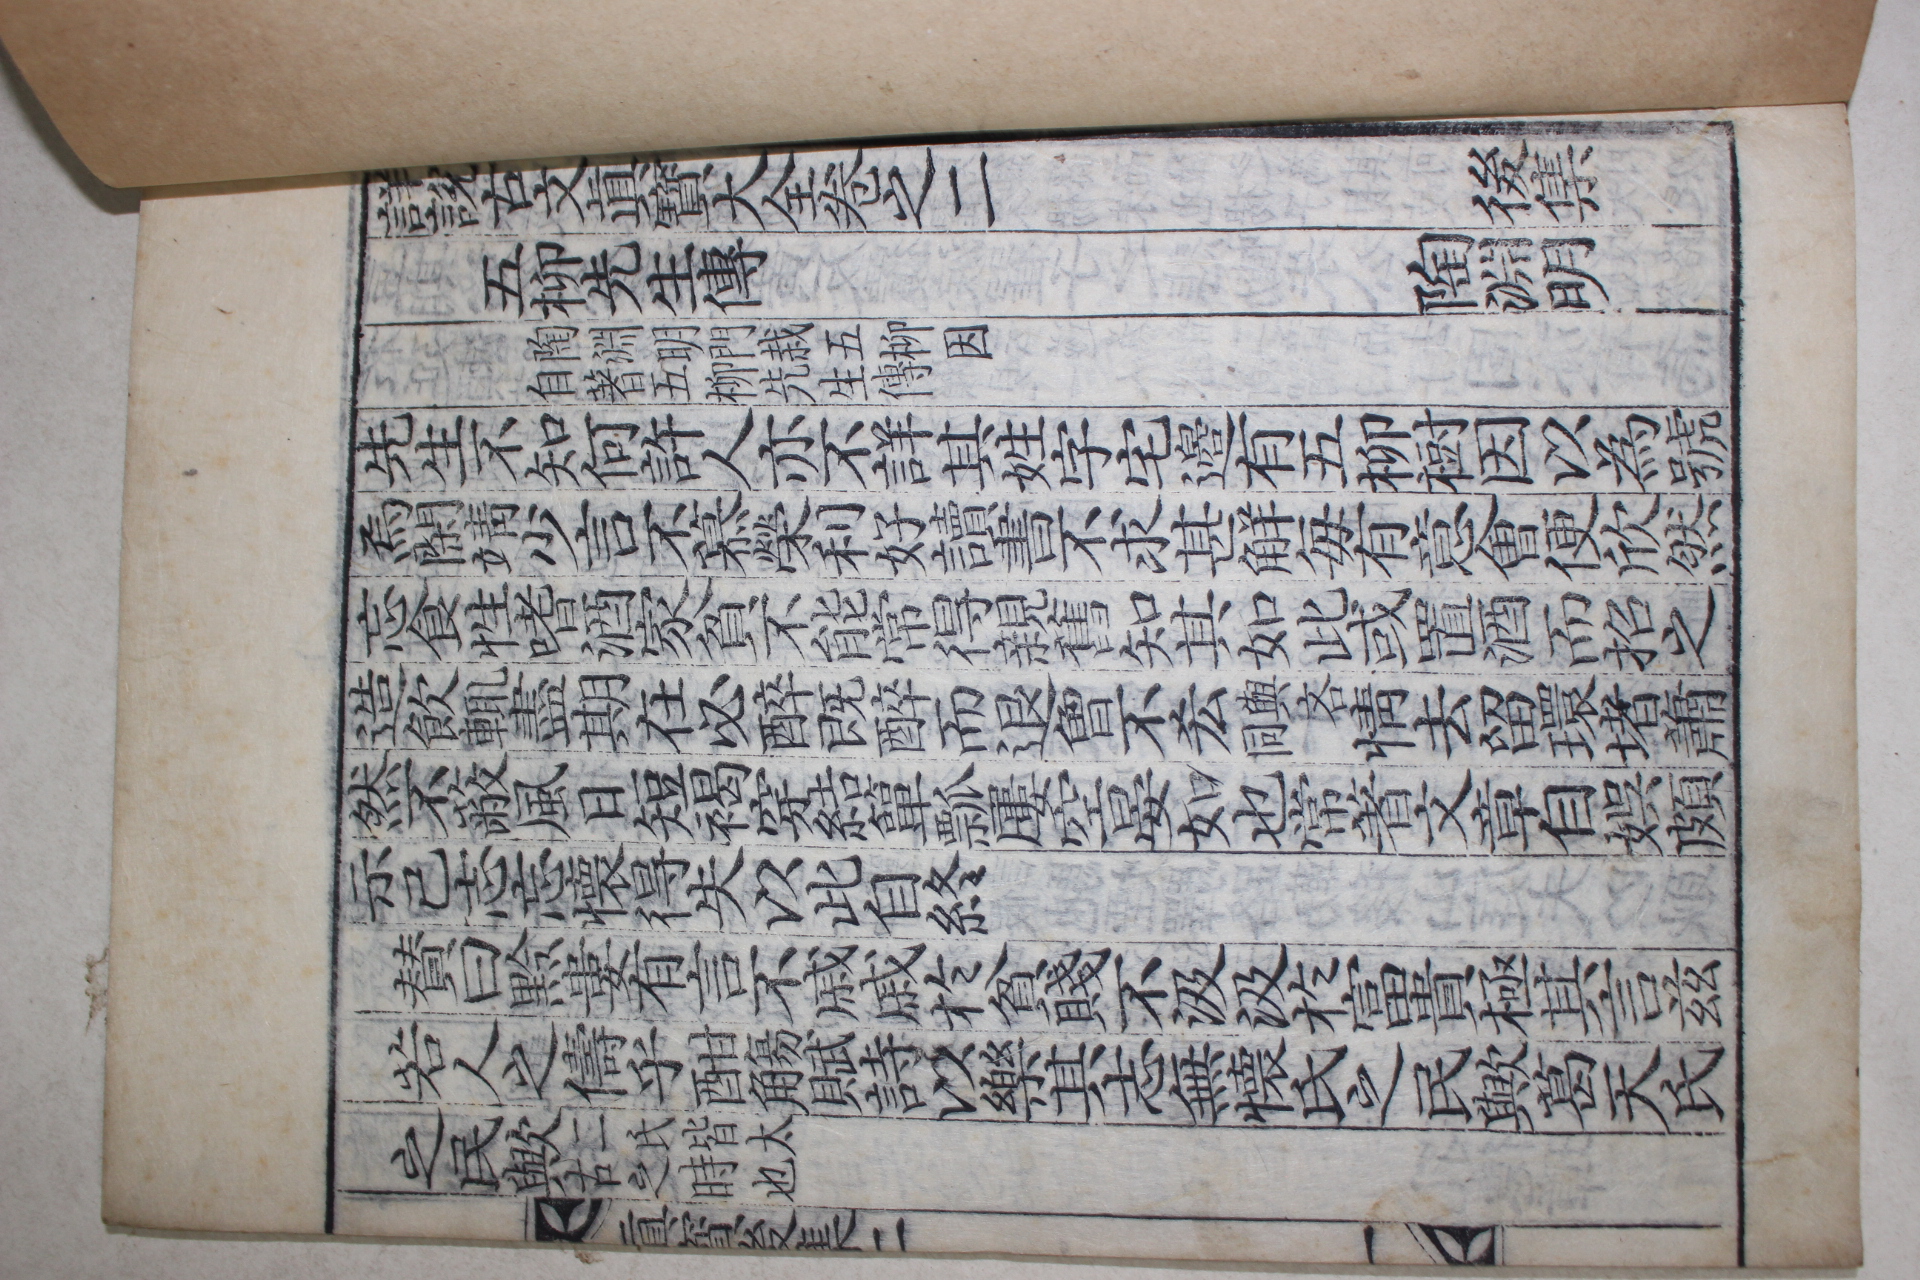 詳說古文眞寶大全卷之二 後集
五柳先生傳 陶淵明
陶淵明門栽五柳因
自著五柳先生傳
先生不知何許人亦不詳其姓字宅邊有五柳樹因以為號
焉閑靖少言不慕榮利好讀書不求甚解每有意會便欣然
忘食性嗜酒家貧不能常得親舊知其如此或置酒而招之
造飮輒盡期在必醉既醉而退曾不吝
與吝
同
情去留環堵蕭
然不蔽風日短褐穿結簞瓢屢空晏如也常著文章自娛頗
示己志忘懷得失以此自終
贊曰黔婁有言不戚戚於貧賤不汲汲於富貴極其言玆
若人之儔乎酣觴賦詩以樂其志無懷氏之民歟葛天氏
之民歟
二氏皆太
古之時也
眞寶後集二
一